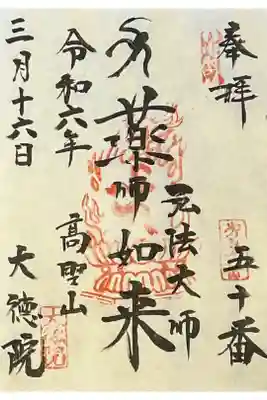 奉拝
五十番
弘法大師
薬師如来
令和六年
高野山
三月十六日
大徳院